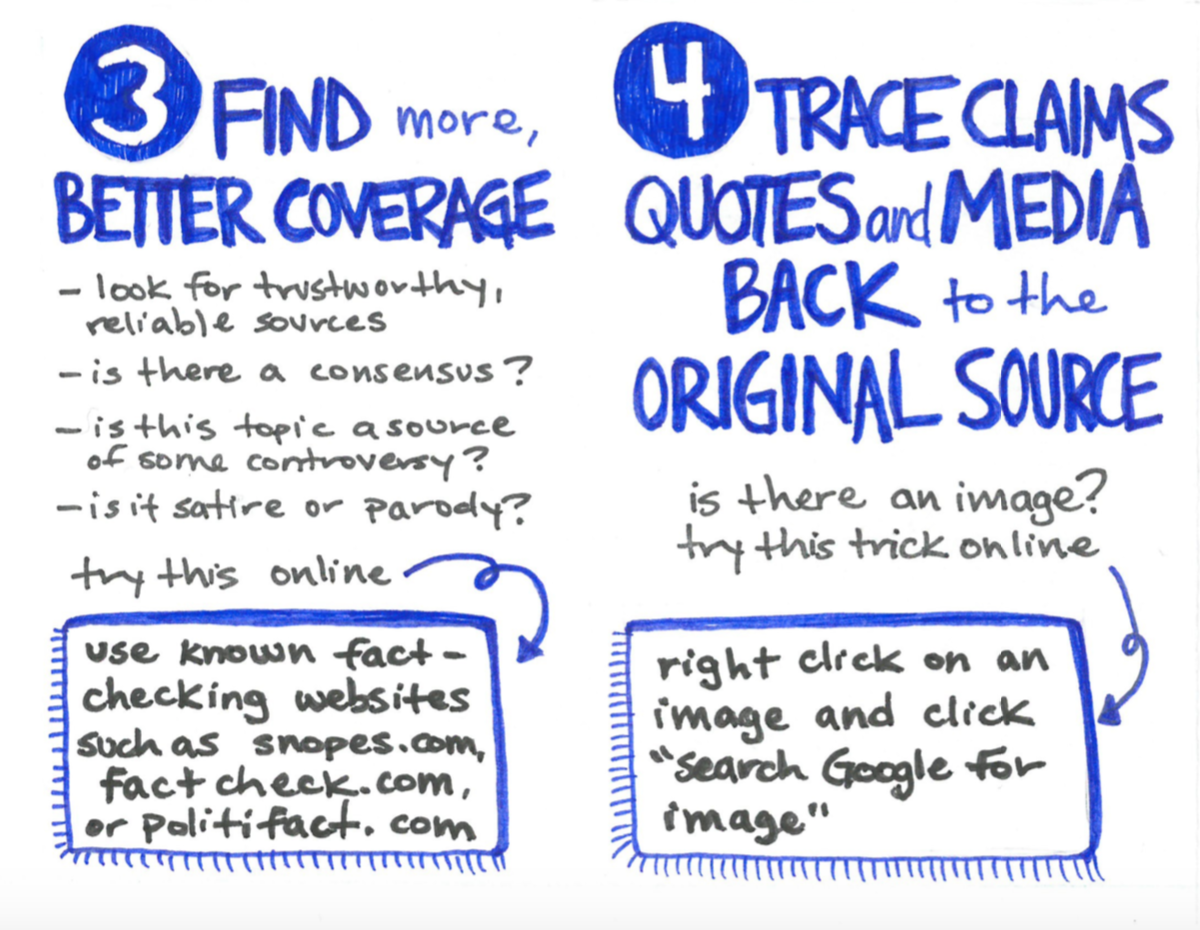 3 FIND more,
BETTER COVERAGE
- look for trustworthy,
reliable sources
- is there a consensus?
- is this topic a source
of some controversy?
- is it satire or parody?
try this online
use known fact-
checking websites
such as snopes.com,
factcheck.com,
or politifact.com
4 TRACE CLAIMS
QUOTES and MEDIA
BACK to the
ORIGINAL SOURCE
is there an image?
try this trick online
right click on an
image and click
"search Google for
image"